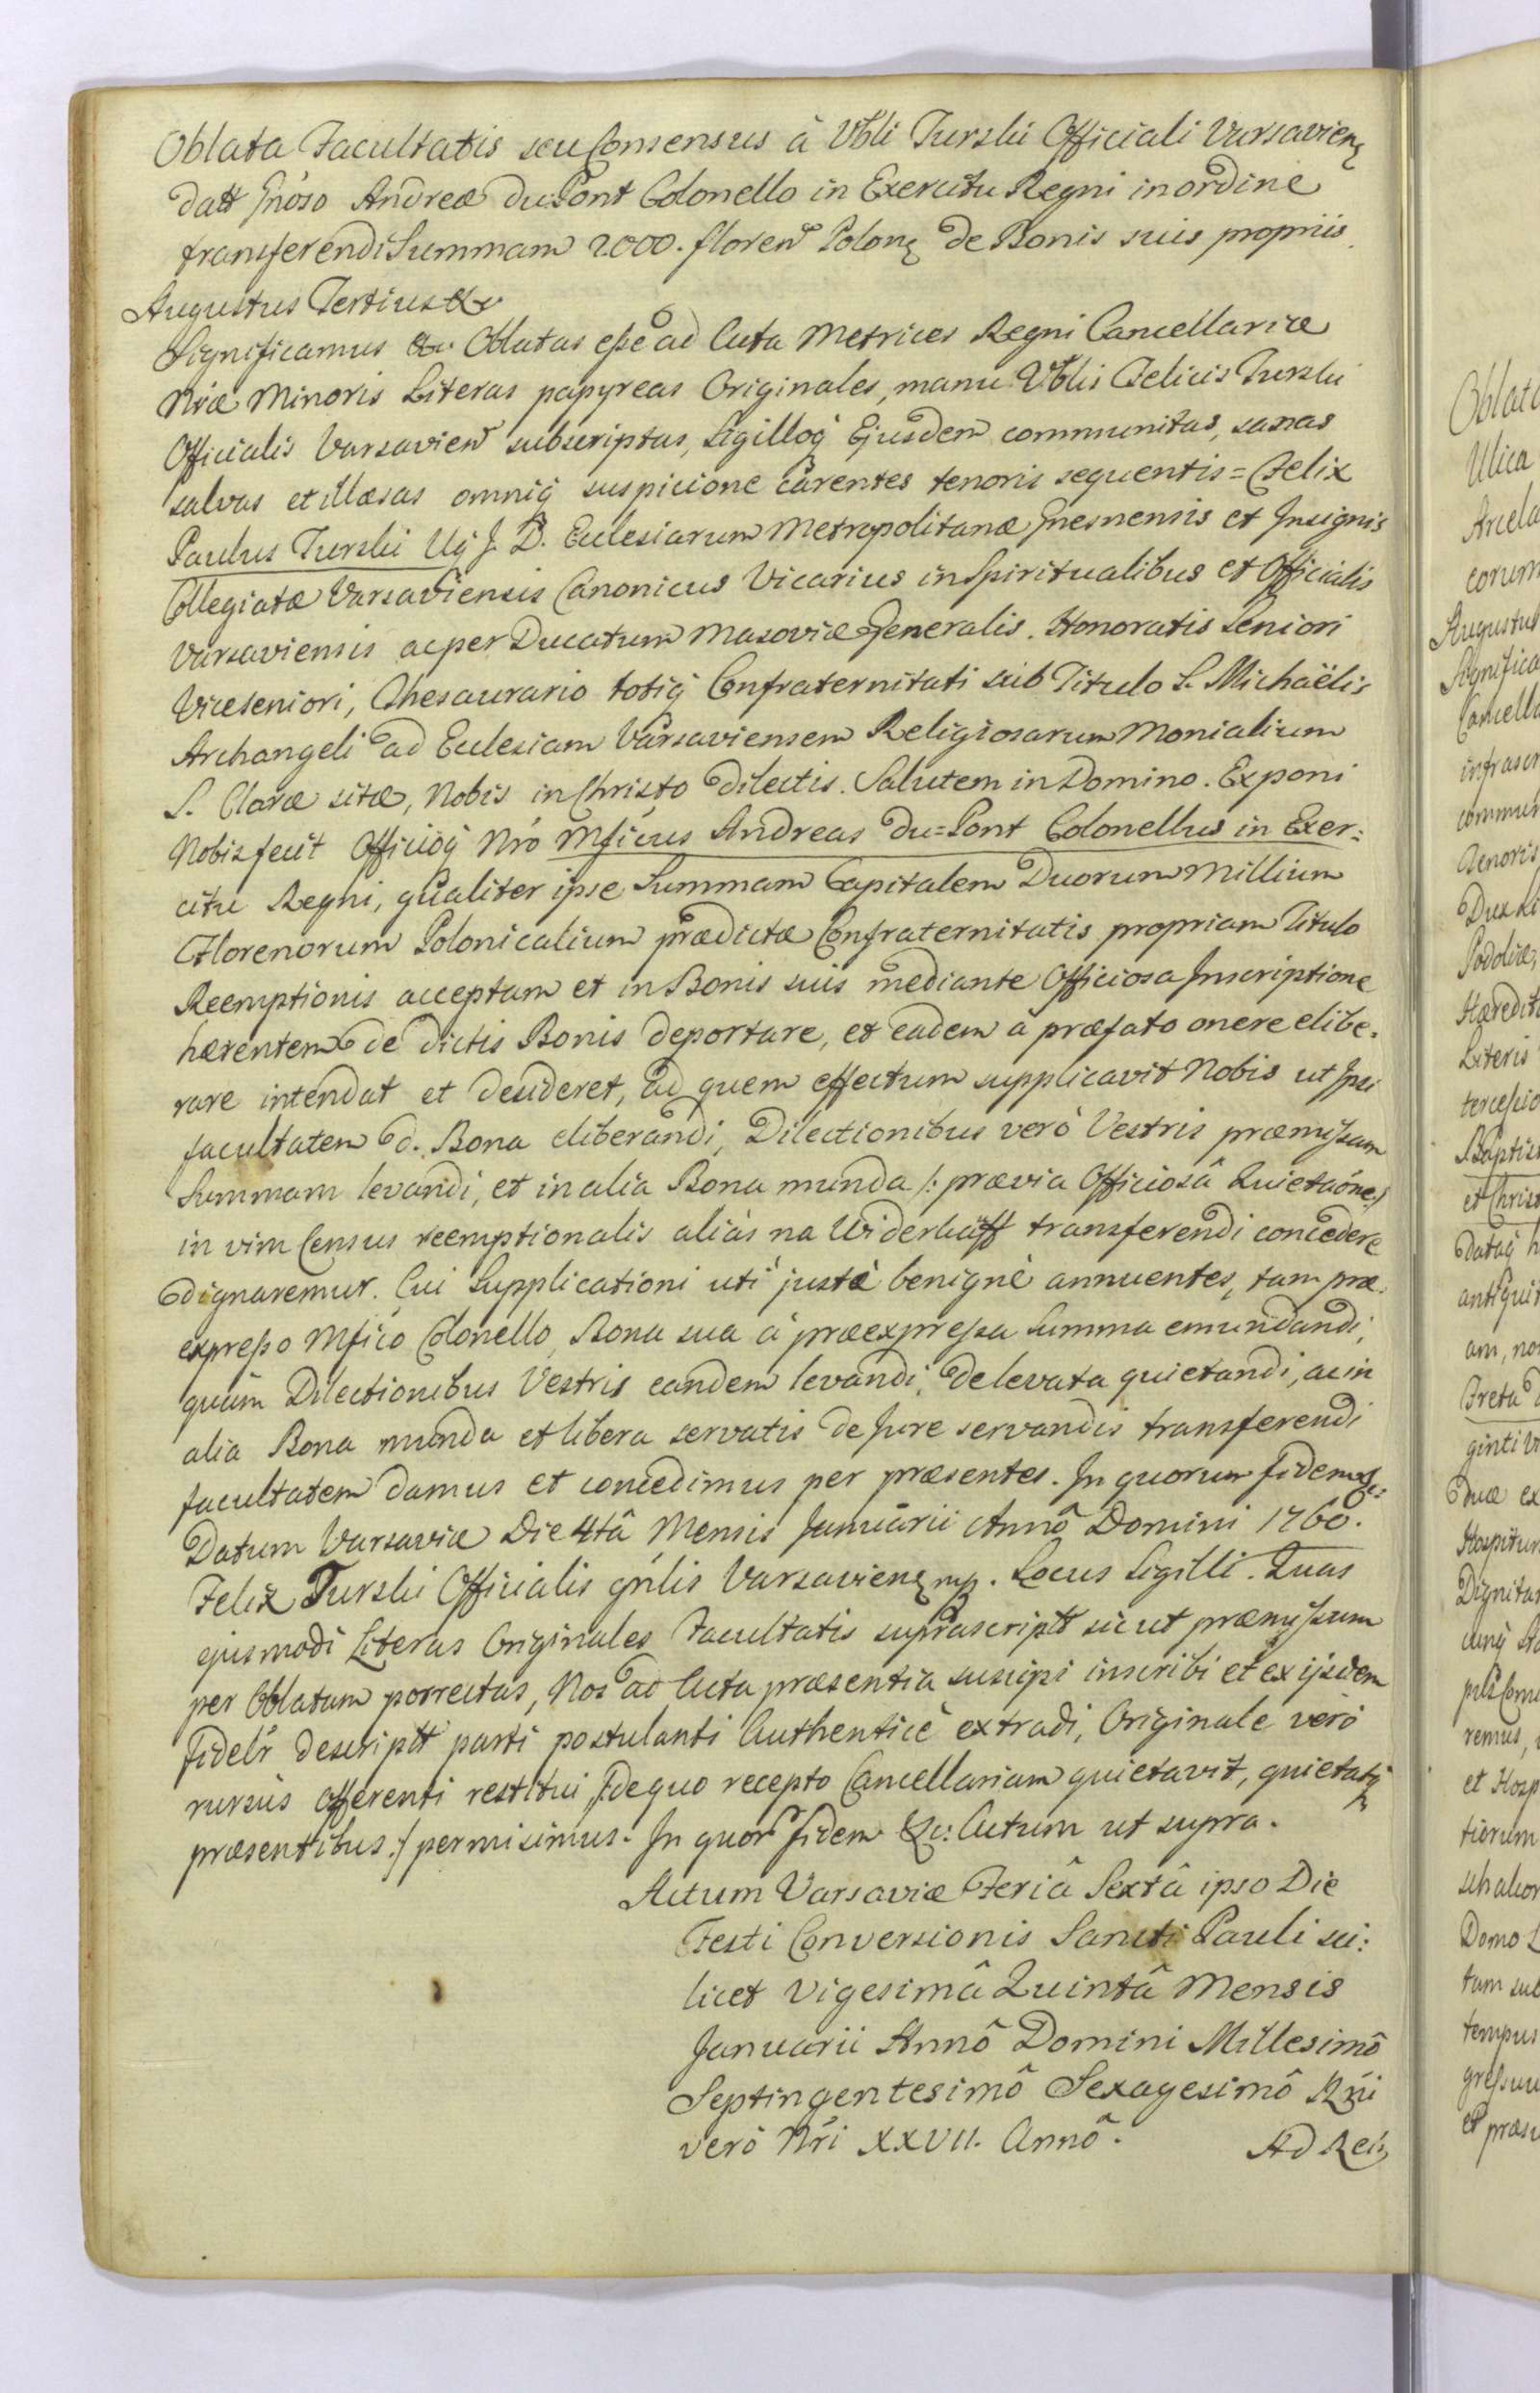 Oblata Facultatis seu Consensus à Vbli Turski Officiali Varsavien
datt Gnoso Andreæ du Pont Colonello in Exercitu Regni in ordine
transferendi Summam 2000. floren Polon de Bonis suis propriis
Augustus Tertius &c
Significamus &c Oblatas eſse ad Acta Metrices Regni Cancellariæ
Nræ Minoris Literas papyreas Originales, manu Vblis Felicis Turski
Officialis Varsavien subscriptas, Sigilloq Ejusdem communitas, sanas
salvas et illæsas omniq suspicione carentes tenoris sequentis = Felix
Paulus Turski Uq J. D. Eclesiarum Metropolitanæ Gnesnensis et Insignis
Collegiatæ Varsaviensis Canonicus Vicarius in Spiritualibus et Officialis
Varsaviensis ac per Ducatum Masoviæ Generalis. Honoratis Seniori
Viceseniori, Thesaurario totiq Confraternitati sub Titulo S. Michaëlis
Archangeli ad Eclesiam Varsaviensem Religiosarum Monialium
S. Claræ sitæ, Nobis in Christo Dilectis. Salutem in Domino. Exponi
Nobis fecit Officioq Nró Mficus Andreas du=Pont Colonellus in Exer:
citu Regni, qualiter ipse Summam Capitalem Duorum Millium
Florenorum Polonicalium prædictæ Confraternitatis propriam Titulo
Reemptionis acceptam et in Bonis suis mediante Officiosa Inscriptione
hærentem de dictis Bonis deportare, et eadem à præfato onere elibe.
rare intendat et desideret, ad quem effectum supplicavit Nobis ut Ipsi
facultatem d. Bona eliberandi, Dilectionibus verò Vestris præmiſsam
Summam levandi, et in alia Bona munda /: prævia Officiosâ Quietaóne :/
in vim Census reemptionalis aliàs na Widerkaff transferendi concedere
dignaremur. Cui Supplicationi uti justæ benignè annuentes, tam præ.
expreſso Mfico Colonello Bona sua à præexpreſsa Summa emundandi,
quàm Dilectionibus Vestris eandem levandi, de levata quietandi, ac in
alia Bona munda et libera servatis de Jure servandis transferendi
facultatem damus et concedimus per præsentes. In quorum fidem &c:
Datum Varsaviæ Die 4tâ Mensis Januarii Annô Domini 1760.
Felix Turski Officialis gnlis Varsavien mp. Locus Sigilli. Quas
ejusmodi Literas Originales Facultatis suprascriptt sicut præmiſsum
per Oblatam porrectas, Nos ad Acta præsentia suscipi inscribi et ex ijsdem
fidelr descriptt parti postulanti Authenticè extradi, Originale verò
rursùs offerenti restitui, /: de quo recepto Cancellariam quietavit, quietatq
præsentibus :/ permisimus. In quor fidem &c: Actum ut supra.
Actum Varsaviæ Feriâ Sextâ ipso Die
Festi Conversionis Sancti Pauli sci:
licet Vigesimâ Quintâ Mensis
Januarii Annô Domini Millesimô
Septingentesimô Sexagesimô Rñi
verò Nri XXVII. Annô.
Ad Rel
Oblata
Ulica
Augustus